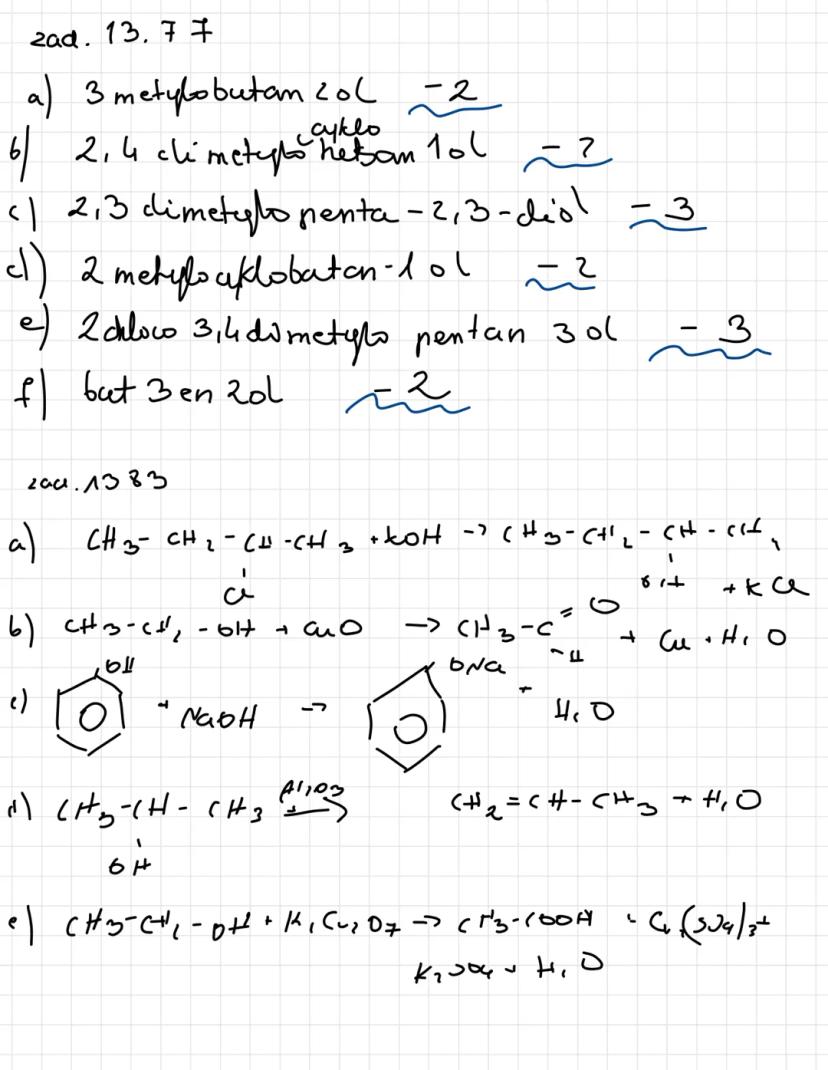 zad. 13.77
a) 3 metylobutan 2 ol - 2
cyklo
b) 2,4 dimetylo heksan 1 ol - 2
c) 2,3 dimetylo penta-2,3-diol - 3
d) 2 metylocyklobutan-1 ol - 2
e) 2 chloro 3,4 dimetylo pentan 3 ol - 3
f) but 3 en 2 ol - 2
zad. 13 83
a) CH3-CH2-CH-CH3 + KOH -> CH3-CH2-CH-CH3
Cl OH + KCl
b) CH3-CH2-OH + CuO -> CH3-C=O -H + Cu + H2O
OH ONa
c) + NaOH -> + H2O
d) CH3-CH-CH3 Al2O3 -> CH2=CH-CH3 + H2O
OH
e) CH3-CH2-OH + K2Cr2O7 -> CH3-COOH + Cr2(SO4)3 +
K2SO4 + H2O